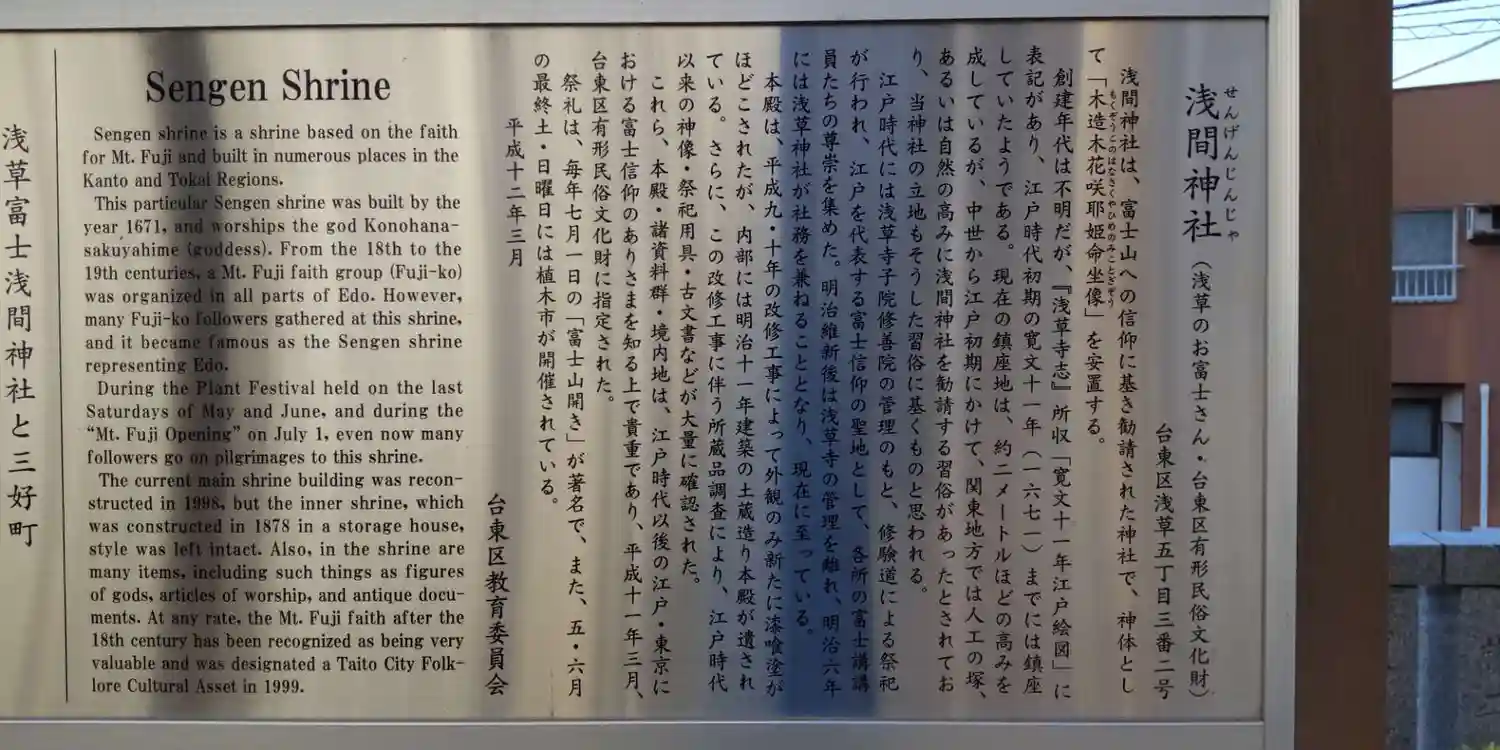 せんげんじんじゃ
浅間神社(浅草のお富士さん・台東区有形民俗文化財)
台東区浅草五丁目三番二号
浅間神社は、富士山への信仰に基き勧請された神社で、神体とし
もくぞうこのはなさくやひめのみことざぞう
て「木造木花咲耶姫命坐像」を安置する。
創建年代は不明だが、『浅草寺志』所収「寛文十一年江戸絵図」に
表記があり、江戸時代初期の寛文十一年(一六七一)までには鎮座
していたようである。現在の鎮座地は、約二メートルほどの高みを
成しているが、中世から江戸初期にかけて、関東地方では人工の塚、
あるいは自然の高みに浅間神社を勧請する習俗があったとされてお
り、当神社の立地もそうした習俗に基くものと思われる。
江戸時代には浅草寺子院修善院の管理のもと、修験道による祭祀
が行われ、江戸を代表する富士信仰の聖地として、各所の富士講講
員たちの尊崇を集めた。明治維新後は浅草寺の管理を離れ、明治六年
には浅草神社が社務を兼ねることとなり、現在に至っている。
本殿は、平成九・十年の改修工事によって外観のみ新たに漆喰塗が
ほどこされたが、内部には明治十一年建築の土蔵造り本殿が遺され
ている。さらに、この改修工事に伴う所蔵品調査により、江戸時代
以来の神像・祭祀用具・古文書などが大量に確認された。
これら、本殿・諸資料群・境内地は、江戸時代以後の江戸・東京に
おける富士信仰のありさまを知る上で貴重であり、平成十一年三月、
台東区有形民俗文化財に指定された。
祭礼は、毎年七月一日の「富士山開き」が著名で、また、五・六月
の最終土・日曜日には植木市が開催されている。
平成十二年三月
台東区教育委員会
Sengen Shrine
Sengen shrine is a shrine based on the faith
for Mt. Fuji and built in numerous places in the
Kanto and Tokai Regions.
This particular Sengen shrine was built by the
year 1671, and worships the god Konohana-
sakuyahime (goddess). From the 18th to the
19th centuries, a Mt. Fuji faith group (Fuji-ko)
was organized in all parts of Edo. However,
many Fuji-ko followers gathered at this shrine,
and it became famous as the Sengen shrine
representing Edo.
During the Plant Festival held on the last
Saturdays of May and June, and during the
“Mt. Fuji Opening” on July 1, even now many
followers go on pilgrimages to this shrine.
The current main shrine building was recon-
structed in 1998, but the inner shrine, which
was constructed in 1878 in a storage house,
style was left intact. Also, in the shrine are
many items, including such things as figures
of gods, articles of worship, and antique docu-
ments. At any rate, the Mt. Fuji faith after the
18th century has been recognized as being very
valuable and was designated a Taito City Folk-
lore Cultural Asset in 1999.
浅草富士浅間神社と三好町